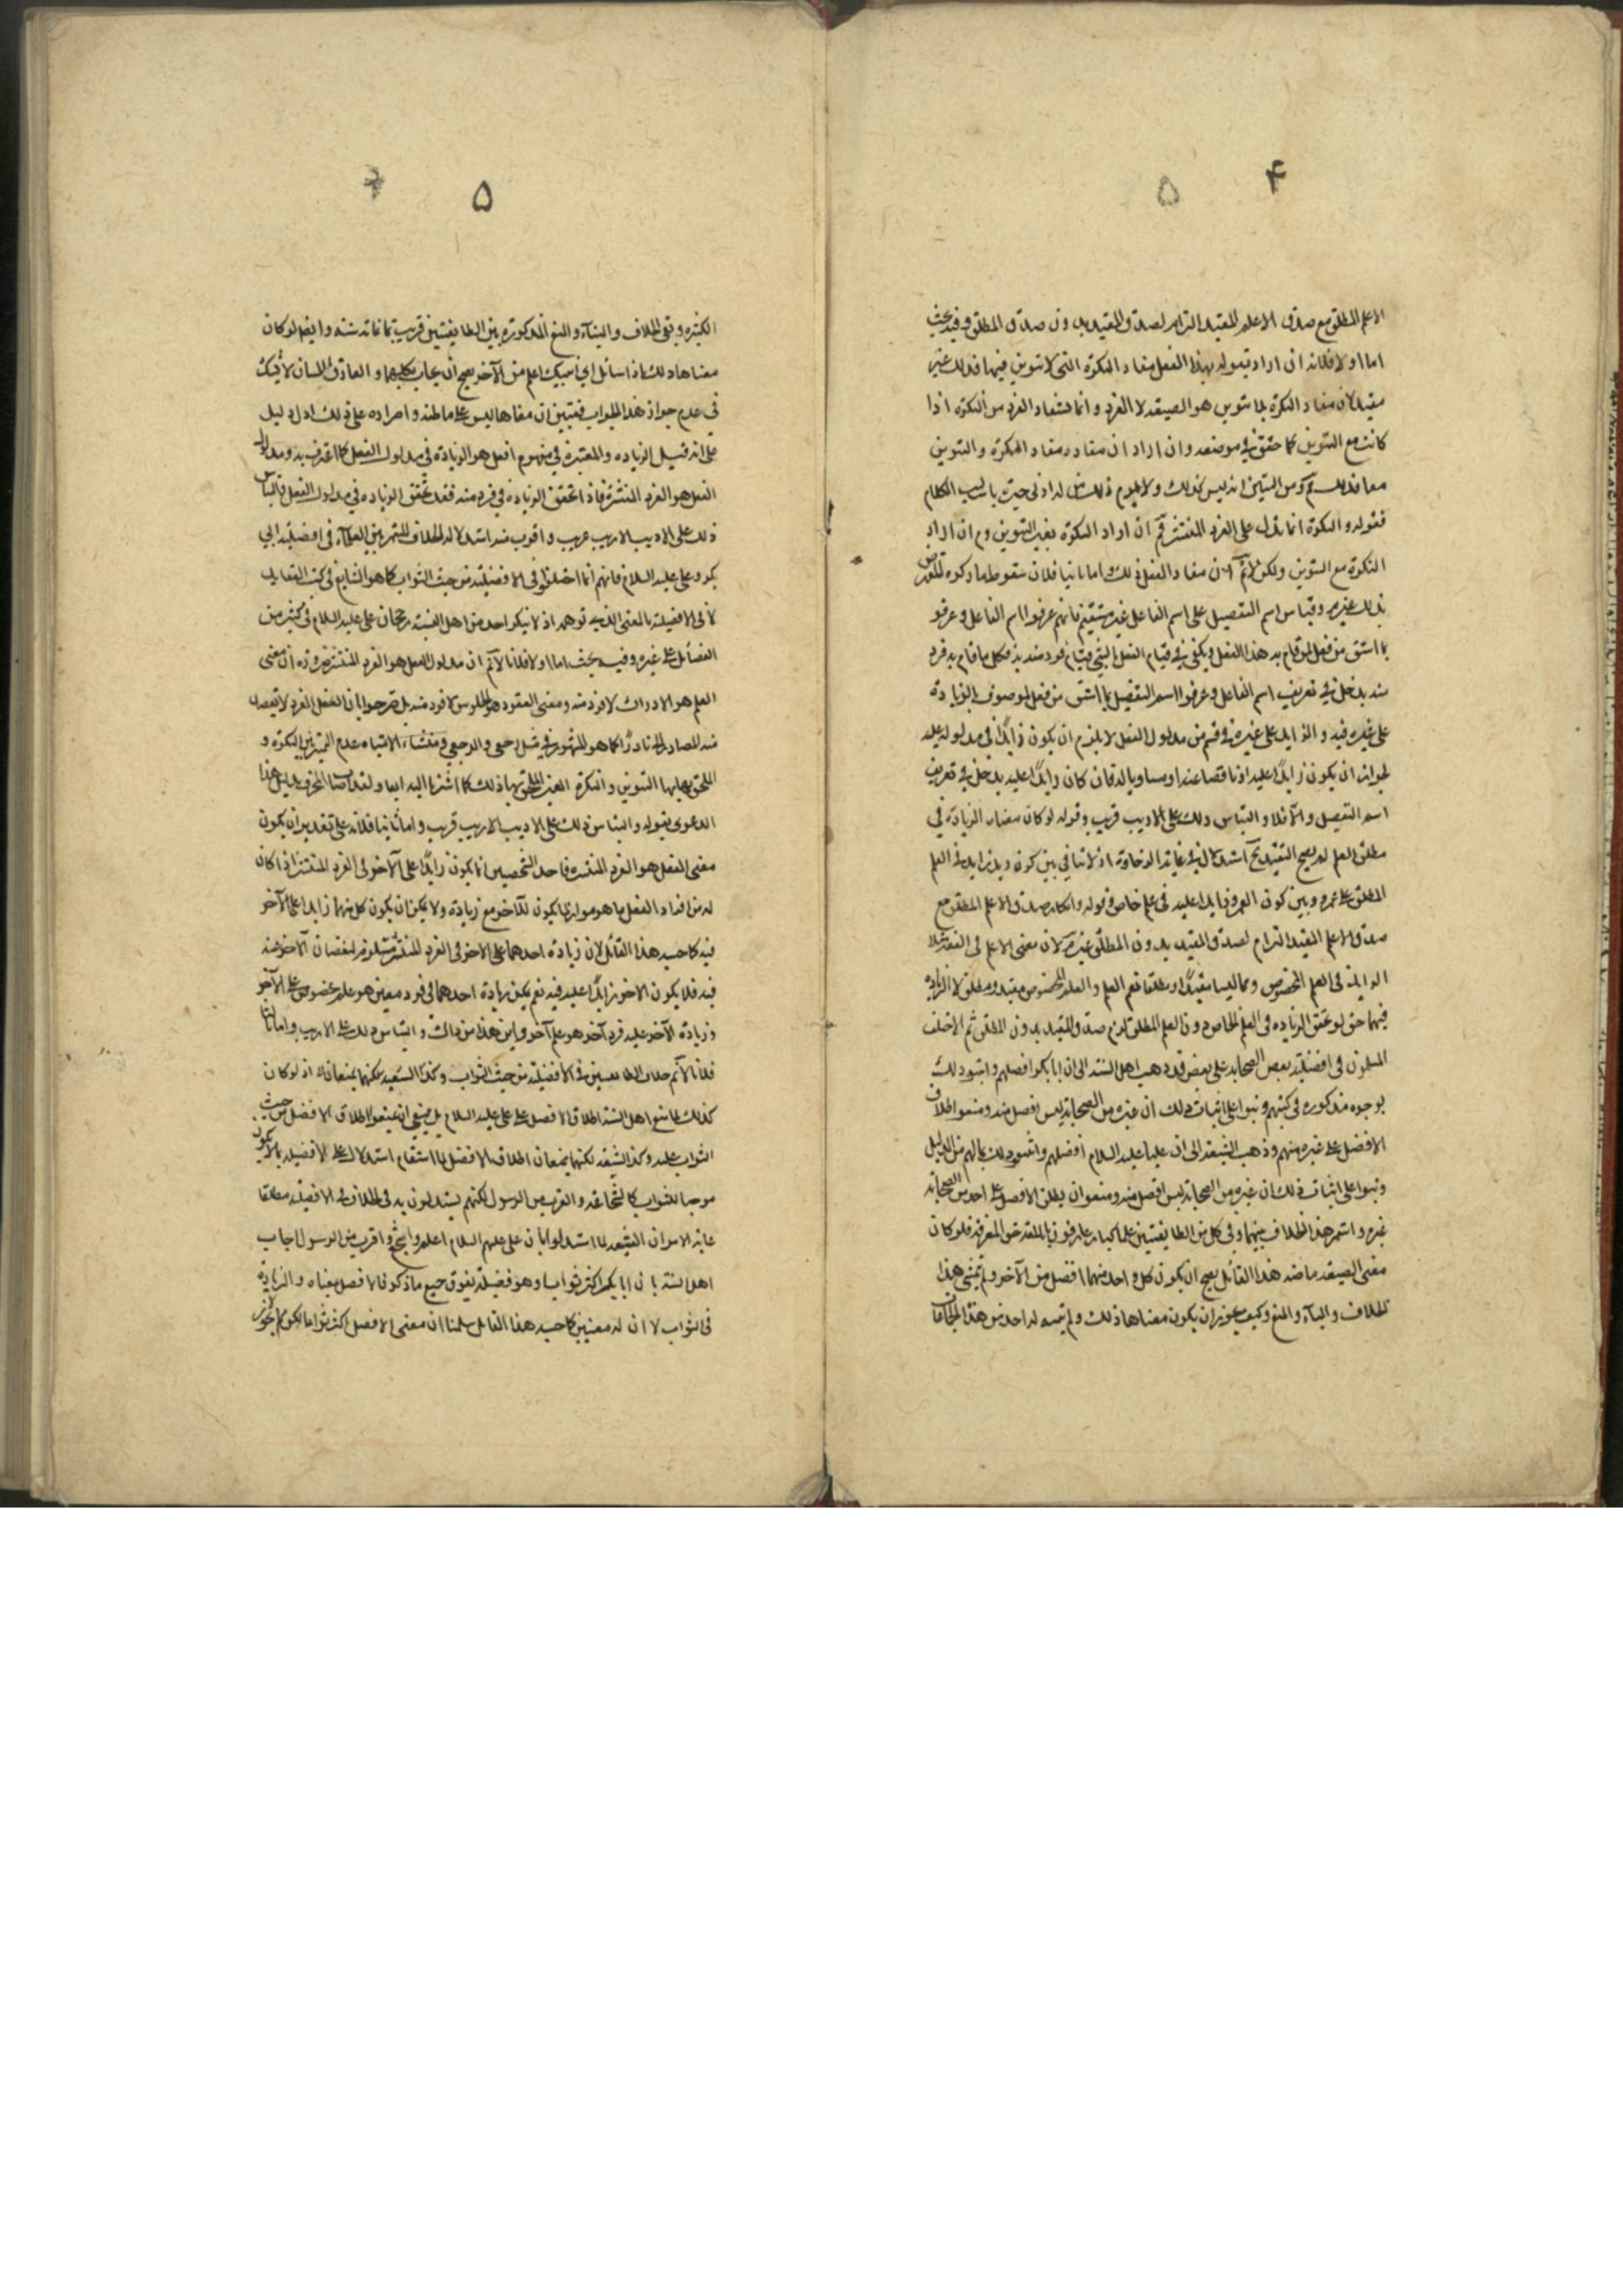 ۴ ۵
الاعلم المطلق مع صدق الاعلم المقيد التزام لصدق المقيد بدون صدق المطلق وفيه بحث
اما اولا فلانه ان اراد بقوله بهذا الفعل مفاد النكرة التي لا تنوين فيها فذلك غير
مفيد لان مفاد النكرة بلا تنوين هو الصيغة لا الفرد وانما يستفاد الفرد من النكرة اذا
كانت مع التنوين كما حقق في موضعه وان اراد ان مفاده مفاد النكرة والتنوين
معا فذلك مم ومن البين انه ليس كذلك ولا يلزم ذلك من
فقوله والنكرة انما تدل على الفرد المنتشر مم ان اراد النكرة بغير التنوين وم ان اراد
النكرة مع التنوين ولكن لانم ان مفاد الفعل ذلك واما ثانيا فلان سقوط ما ذكره
بذلك وقياس اسم التفضيل على اسم الفاعل غير مستقيم فانهم عرفوا اسم الفاعل وعرفو
بما اشتق من فعل لمن قام به هذا الفعل ويكفي في قيام الفعل بالشيء قيام فرد منه به فكل ما قام به فرد
منه يدخل في تعريف اسم الفاعل وعرفوا اسم التفضيل بما اشتق من فعل لموصوف بالزيادة
على غيره فيه والزايد على غيره في قسم من مدلول الفعل لا يلزم ان يكون زايدا في مدلوله عليه
لجواز ان يكون زايدا عليه اذ ناقصا عنه او مساويا له فان كان زايدا عليه يدخل في تعريف
اسم التفضيل والا فلا والتباس ذلك على الاديب قريب وقوله لو كان مفاد الزيادة في
مطلق العلم لم يصح التقييد مم استدلال في غاية الرخاوة اذ لا تنافي بين كون زيد زايد في العلم
المطلق على عمرو وبين كون العمرو زايدا عليه في علم خاص وقوله وانكار صدق الاعلم المطلق مع
صدق الاعلم المقيد التزام لصدق المقيد بدون المطلق غير مم لان معنى الاعلم في الفقه مثلا
الزايد في العلم المخصوص وهما ليسا مقيدا ومطلقا نعم العلم والعلم المخصوص مقيد ومطلق لا الزيادة
فيهما حتى لو تحقق الزيادة في العلم الخاص دون العلم المطلق لزم صدق المقيد بدون المطلق ثم الاختلف
المسلمون في افضلية بعض الصحابة على بعض فذهب اهل السنة الى ان ابا بكر افضلهم واثبتوا ذلك
بوجوه مذكورة في كتبهم وبنوا على اثبات ذلك ان غيره من الصحابة ليس افضل منه ومنعوا اطلاق
الافضل على غيره منهم وذهب الشيعة الى ان عليا عليه السلام افضلهم واثبتوا ذلك بما لهم من الدليل
وبنوا على اثبات ذلك ان غيره من الصحابة ليس افضل منه ومنعوا ان يطلق الافضل على احد من الصحابة
غيره واستمر هذا الخلاف بينهما وفي كل من الطايفتين علما كبار عارفون باللغة حق المعرفة فلو كان
معنى الصيغة ما ظنه هذا القائل يصح ان يكون كل واحد منهما افضل من الآخر ولم يتمشى هذا
الخلاف والبناء والمنع وكيف يجوز ان يكون معناها ذلك ولم يتنبه له احد من هذه
۵ ۶
الكثيرة وبقي الخلاف والبناء والمنع المذكورة بين الطايفتين قريب ثمانمائة سنة وايضا لو كان
معناها ذلك فاذا سائل اي ابنيك اعلم من الآخر يصح ان يجاب بكليهما والعارف باللسان لا يشك
في عدم جواز هذا الجواب فتبين ان معناها ليس على ما ظنه واصراره على ذلك ادل دليل
على انه قبيل الزيادة والمعتبرة في مفهوم افعل هو الزيادة في مدلول الفعل كما اعترف به ومدلول
الفعل هو الفرد المنتشر فاذا تحقق الزيادة في فرد منه فقد تحقق الزيادة في مدلول الفعل والتباس
ذلك على الاديب الاريب غريب واغرب منه استدلاله بالخلاف المستمر بين العلماء في افضلية ابي
بكر وعلي عليه السلام فانهم انما اختلفوا في الافضلية من حيث الثواب كما هو الشايع في كتب العقايد
لا في الافضلية بالمعنى الذي توهمه اذ لا ينكر احد من اهل السنة رجحان علي عليه السلام في كثير من
الفضائل على غيره وفيه بحث اما اولا فلانا لانم ان مدلول الفعل هو الفرد المنتشر ضرورة ان معنى
العلم هو الادراك لا فرد منه ومعنى القعود هو الجلوس لا فرد منه بل صرحوا بان الفعل الفرد لا يقصد
منه المصادر الا نادرا كما هو المشهور في مثل رجعى والرجعي ومنشاء الاشتباه عدم التمييز بين النكرة و
اللاحق بها التنوين والنكرة الغير الملحق بها ذلك كما اشرنا اليه هذا
الدعوى بقوله والتباس ذلك على الاديب الاريب قريب واما ثانيا فلانه على تقدير ان يكون
معنى الفعل هو الفرد المنتشر فاحد الشخصين انما يكون زايدا على الآخر في الفرد المنتشر اذا كان
له من افراد الفعل ما هو موازنا يكون للآخر مع زيادة ولا يمكن ان يكون كل منهما زايدا على الآخر
فيه كما حسبه هذا القائل لان زيادة احدهما على الاخر في الفرد المنتشر مستلزم لنقصان الآخر منه
فيه فلا يكون الاخر زايدا عليه فيه نعم يمكن زيادة احدهما في فرد معين هو علم مخصوص على الآخر
وزيادة الآخر عليه في فرد آخر هو علم آخر واين هذا من ذاك والتباس ذلك على الاريب واما ثالثا
فلانا لانم خلاف الطايفتين في الافضلية من حيث الثواب وكذا الشيعة لكنهما يمنعان اذ لو كان
كذلك لما منع اهل السنة اطلاق الافضل على علي عليه السلام بل ينبغي ان يمنعوا اطلاق الافضل من حيث
الثواب عليه وكذا الشيعة لكنهما يمنعان اطلاق الافضل لما استقام استدلال على الافضلية بما لا يكون
موجبا للثواب كالشجاعة والقرب من الرسول لكنهم يستدلون به في الخلاف في الافضلية مطلقا
غاية الامر ان الشيعة لما استدلوا بان علي عليهم السلام اعلم واشجع واقرب من الرسول اجاب
اهل السنة بان ابا بكر اكثر ثوابا وهو فضيلة يفوق جميع ما ذكر فالافضل معناه والزيادة
في الثواب لا ان له معنيين كما حسبه هذا القايل سلمنا ان معنى الافضل اكثر ثوابا لكن لم لا يجوز